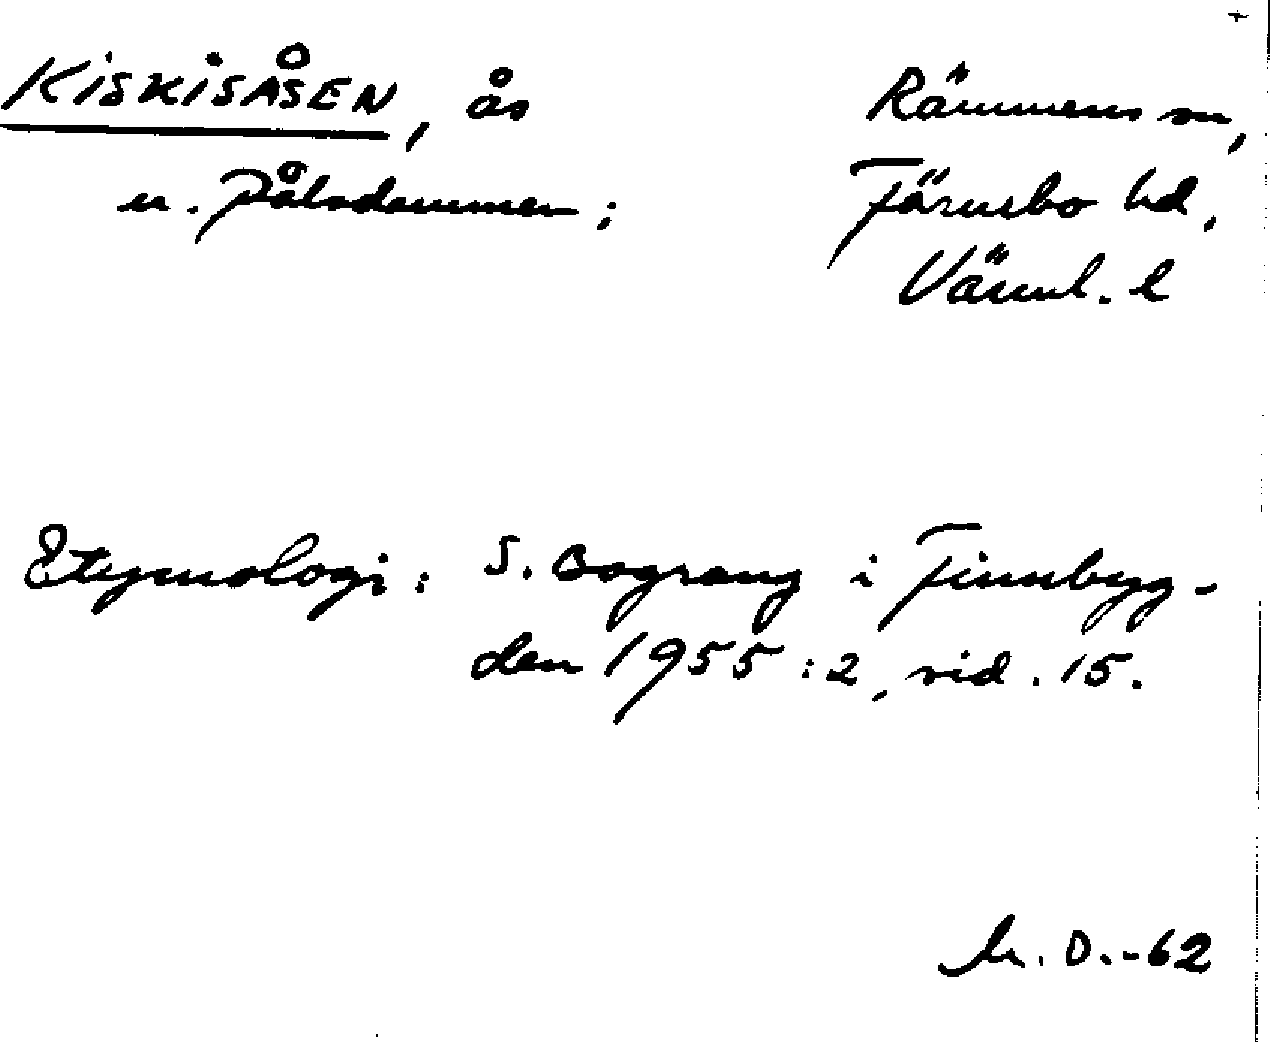 KISKISÅSEN, ås
n. Pålsdammen;
Rämmens sn,
Färnebo hd,
Värml. l
Etymologi: S. Bograng i Finnbyg-
den 1955:2, sid. 15.
D.-62